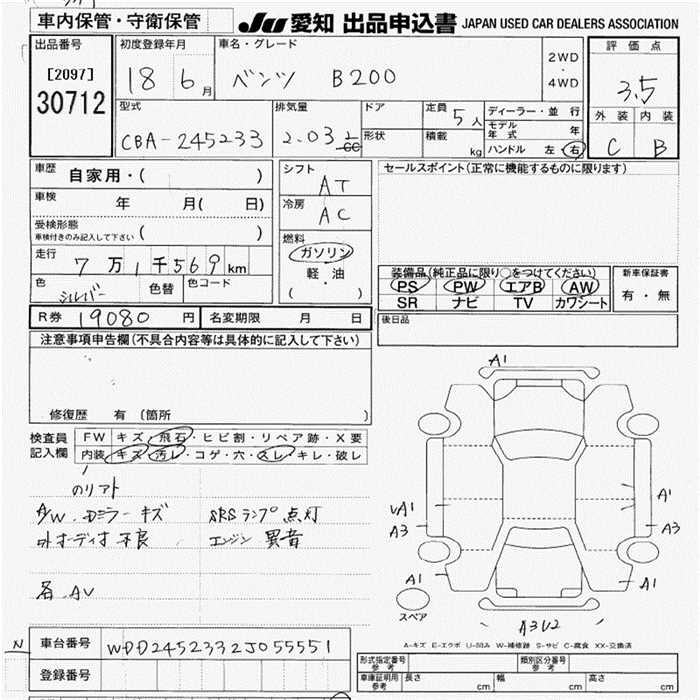 車内保管・守衛保管
JU 愛知 出品申込書 JAPAN USED CAR DEALERS ASSOCIATION
出品番号
[2097]
30712
初度登録年月
18 6月
車名・グレード
ベンツ B200
2WD
・
4WD
評価点
3.5
外装 内装
C B
型式
CBA-245233
排気量
2.03 ℓ
cc
ドア
形状
定員 5人
積載 kg
ディーラー・並行
モデル年式 年
ハンドル 左・右
車歴 自家用・( )
車検 年 月( 日)
受検形態
車検付きのみ記入して下さい ( )
走行 7万1千569km
色 シルバー 色替 色コード
シフト AT
冷房 AC
燃料
ガソリン
軽・油
( ・ )
セールスポイント(正常に機能するものに限ります)
装備品(純正品に限り○をつけてください)
PS PW エアB AW
SR ナビ TV カワシート
新車保証書
有・無
R券 19080 円 名変期限 月 日
後日品
注意事項申告欄(不具合内容等は具体的に記入して下さい)
修復歴 有 (箇所 )
検査員
記入欄
FW キズ・飛石・ヒビ割・リペア跡・X要
内装 キズ・汚レ・コゲ・穴・スレ・キレ・破レ
のリアト
A/W.Dミラーキズ SRSランプ点灯
外オーディオ不良 エンジン異音
各AU
A1
A1
A3
A1
A3
A1
A1
スペア
A3U2
A-キズ E-エクボ U-凹み W-補修跡 S-サビ C-腐食 XX-交換済
N
車台番号 WDD2452332J055551
登録番号
形式指定番号
参考
類別区分番号
参考
車庫証明用
参考
長さ cm 幅 cm 高さ cm